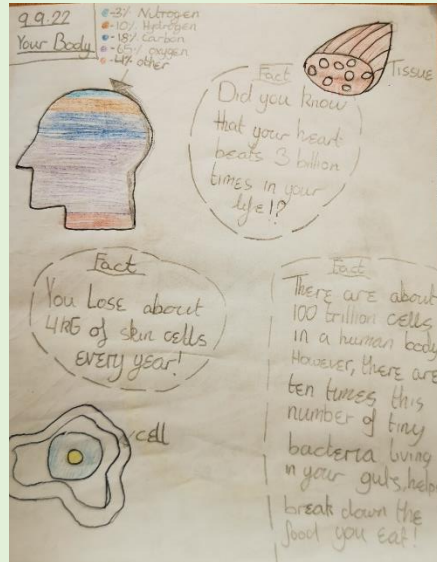 9.9.22
Your Body
-3% Nutrogen
-10% Hydrogen
-18% Carbon
-65% oxygen
-4% other
Tissue
Fact
Did you know
that your heart
beats 3 billion
times in your
life!?
Fact
You Lose about
4KG of skin cells
every year!
Fact
There are about
100 trillion cells
in a human body
However, there are
ten times this
number of tiny
bacteria living
in your guts, help
break down the
food you eat!
cell